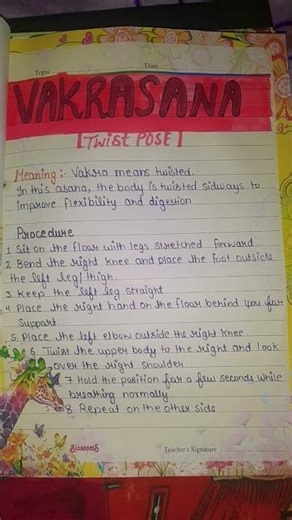 Topic Date
VAKRASANA
[TWIST POSE]
Meaning :- Vakra means twisted.
In this asana, the body is twisted sidways to
improve flexibility and digestion
Procedure
1 Sit on the floor with legs stretched forward
2 Bend the right knee and place the foot outside
the left leg/thigh.
3 Keep the left leg straight
4 Place the right hand on the floor behind you for
Support.
5. Place the left elbow outside the right knee
6 Twist the upper body to the right and look
over the right shoulder
7 Hold the position for a few seconds while
breathing normally
8 Repeat on the other side
Blossoms Teacher's Signature